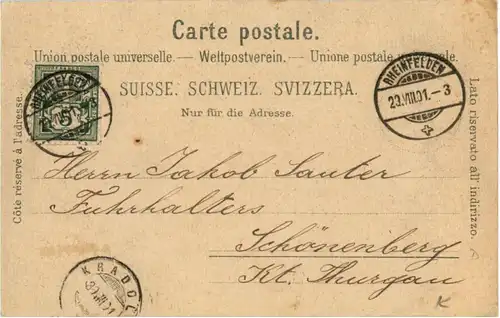 Carte postale.
Union postale universelle. — Weltpostverein. — Unione postale universale.
SUISSE. SCHWEIZ. SVIZZERA.
Nur für die Adresse.
Côté réservé à l'adresse.
Lato riservato all' indirizzo.
RHEINFELDEN
23.VIII.01.–3
Herrn Jakob Sauter
Fuhrhalters
Schönenberg
Kt. Thurgau
K